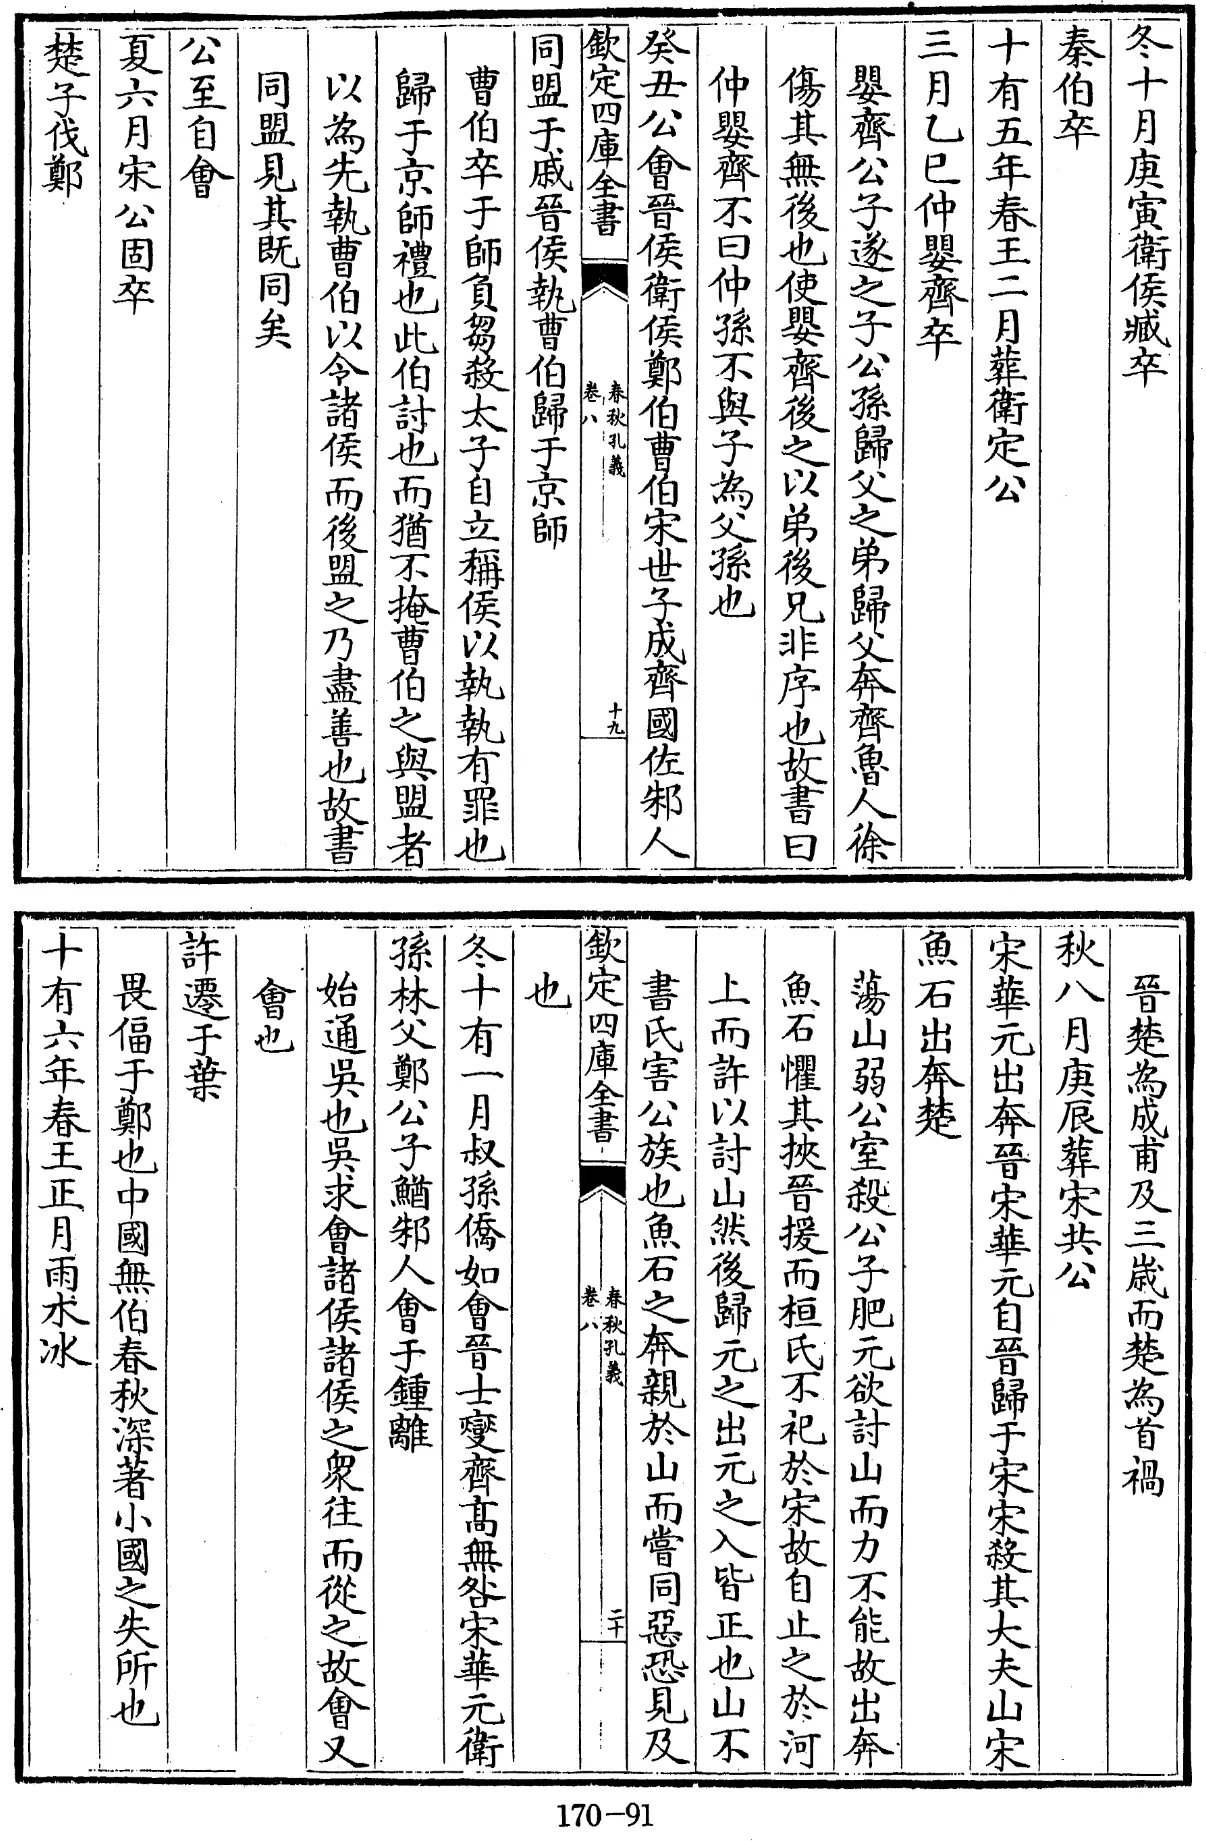 冬十月庚寅衛侯臧卒
秦伯卒
十有五年春王二月葬衛定公
三月乙巳仲嬰齊卒
嬰齊公子遂之子公孫歸父之弟歸父奔齊魯人徐
傷其無後也使嬰齊後之以弟後兄非序也故書曰
仲嬰齊不曰仲孫不與子為父孫也
癸丑公會晉侯衛侯鄭伯曹伯宋世子成齊國佐邾人
欽定四庫全書
春秋孔義
卷八
十九
同盟于戚晉侯執曹伯歸于京師
曹伯卒于師負芻殺太子自立稱侯以執執有罪也
歸于京師禮也此伯討也而猶不掩曹伯之與盟者
以為先執曹伯以令諸侯而後盟之乃盡善也故書
同盟見其既同矣
公至自會
夏六月宋公固卒
楚子伐鄭
晉楚為成甫及三歳而楚為首禍
秋八月庚辰葬宋共公
宋華元出奔晉宋華元自晉歸于宋宋殺其大夫山宋
魚石出奔楚
蕩山弱公室殺公子肥元欲討山而力不能故出奔
魚石懼其挾晉援而桓氏不祀於宋故自止之於河
上而許以討山然後歸元之出元之入皆正也山不
書氏害公族也魚石之奔親於山而嘗同惡恐見及
欽定四庫全書
春秋孔義
卷八
二十
也
冬十有一月叔孫僑如會晉士燮齊髙無咎宋華元衛
孫林父鄭公子鰌邾人會于鍾離
始通吳也吳求會諸侯諸侯之衆往而從之故會又
會也
許遷于葉
畏偪于鄭也中國無伯春秋深著小國之失所也
十有六年春王正月雨木冰
170-91